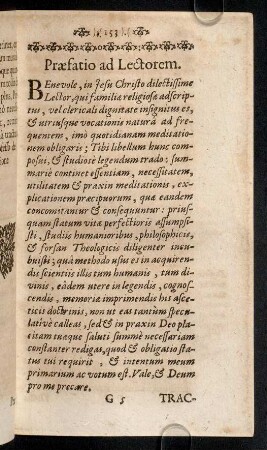 153
Præfatio ad Lectorem.
BEnevole, in Jesu Christo dilectissime
Lector, qui familiæ religiosæ adscrip-
tus, vel clericali dignitate insignitus es,
& utriusque vocationis naturâ ad fre-
quentem, imò quotidianam meditatio-
nem obligaris; Tibi libellum hunc com-
posui, & studiosè legendum trado: sum-
mariè continet essentiam, necessitatem,
utilitatem & praxin meditationis, ex-
plicationem præcipuorum, quæ eandem
concomitantur & consequuntur: prius-
quam statum vitæ perfectioris assumpsi-
sti, studiis humanioribus, philosophicis,
& forsan Theologicis diligenter incu-
buisti; quâ methodo usus es in acquiren-
dis scientiis illis tum humanis, tum di-
vinis, eâdem utere in legendis, cognos-
cendis, memoria imprimendis his asce-
ticis doctrinis, non ut eas tantùm specu-
lativè calleas, sed & in praxin Deo pla-
citam tuæque saluti summè necessariam
constanter redigas, quod & obligatio sta-
tus tui requirit, & intentum meum
primarium ac votum est. Vale, & Deum
pro me precare.
G 5 TRAC-